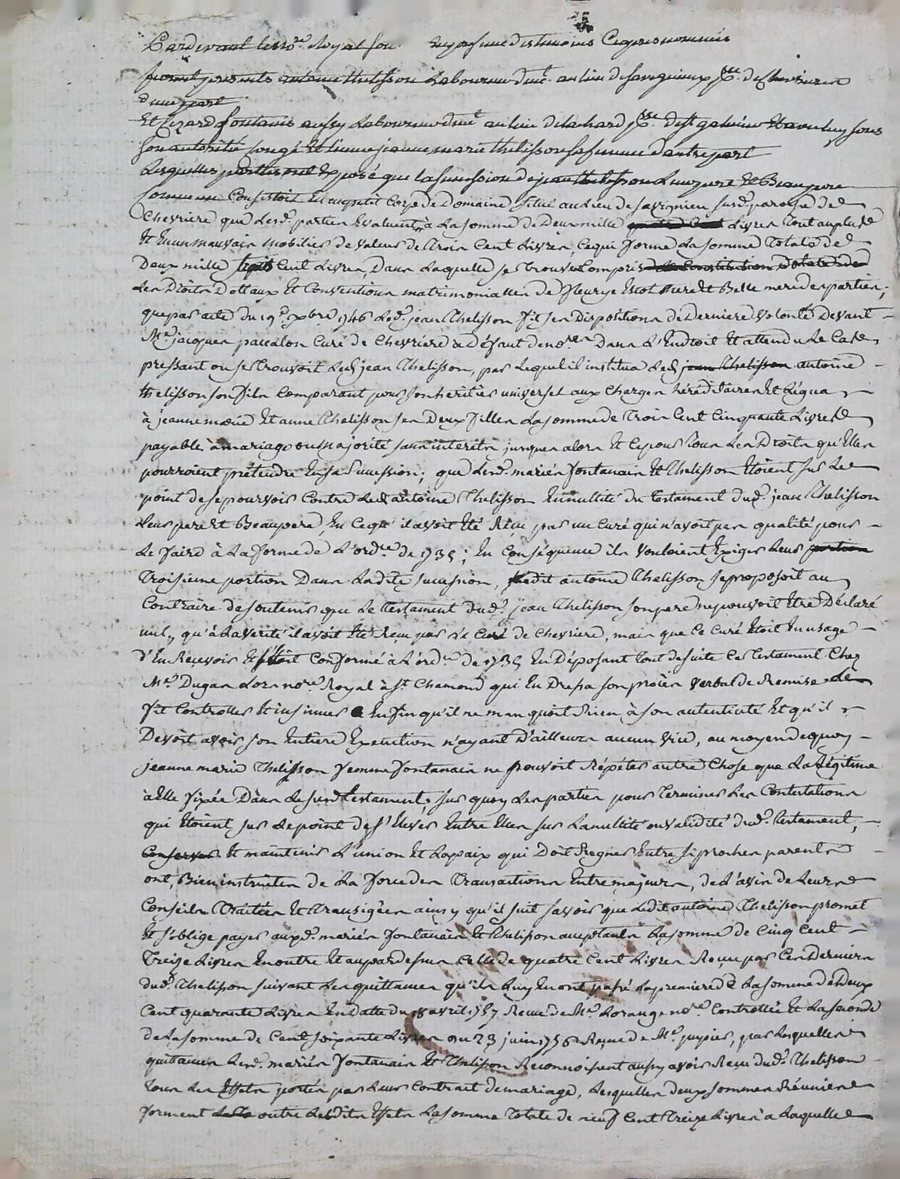 Pardevant les no.re Royal sou en presence des temoins cy apres nommés
furent presents antoine thelisson Laboureur d'mt. au lieu de savignieux p.sse de Chevrieres
d'une part
Et pierre fontanis aussy Laboureur d'mt au lieu de Lachard p.sse de st galmier Et avec luy sous
son autorité congé Et licence jeanne marie thelisson sa femme d'autre part
Lesquelles parties ont Exposé que la succession de jean thelisson Leur pere Et Beaupere
commune Consistoit En un petit Corps de Domaine situé au lieu de savignieu susd. paroisse de
Chevriere que lesd. parties Evaluent à La somme de Deux mille Livres tout au plus
Et En un mauvais mobilier de valeur de Trois Cent Livres, Ce qui forme La somme Totale de
Deux mille Cent Livres, Dans Laquelle se trouve Compris
Les Droits Dottaux Et Conventions matrimonialles de fleurye mere Et Belle mere des parties;
que par acte du 19e. xbre 1746 Led. jean thelisson fit ses Dispositions de Derniere volonté Devant
Me. jacques passalon Curé de Chevriere a Défaut de no.re Dans L'Endroit Et attendu Le Cas
pressant ou se trouvoit Led. jean thelisson, par Lequel il institua Led. jean thelisson antoine
thelisson son fils Comparant pour son heritier universel aux Charges héréditaires Et Légua
à jeanne marie Et anne thelisson ses Deux filles La somme de Trois Cent Cinquante Livres
payable à mariage ou majorité sans interêts jusques alors Et Ce pour tous Les Droits qu'Elles
pourroient prétendre En sa succession; que Lesd. mariés fontanais Et thelisson Etoient sur Le
point de se pourvoir Contre Led. antoine thelisson En nullité du testament dud. jean thelisson
Leur pere Et Beaupere, En Ce qu'il avoit Eté Réçu par un Curé qui n'avoit pas qualité pour
Le faire à La forme de L'ord.ce de 1735; En Conséquence ils vouloient Exiger Leur portion
Troisieme portion Dans Ladite succession, Ledit antoine thelisson se proposoit au
Contraire de soutenir que Le testament dud. jean thelisson son pere ne pouvoit Etre Déclaré
nul, qu'à La verité il avoit Eté Recu par Le Curé de Chevriere, mais que Ce Curé Etoit En usage
d'En Recevoir Et s'Etoit Conformé à L'ord.ce de 1735 En Déposant tout de suite Ce testament Chez
Me. Dugas Lors no.re Royal à st. Chamond qui En Dressa son procès verbal de Remise Le
fit Controller Et insinuer Enfin qu'il ne manquoit Rien à son autenticité Et qu'il
Devoit avoir son Entiere Execution n'ayant D'ailleurs aucun vice, au moyen de quoy
jeanne marie thelisson femme fontanais ne pouvoit Répéter autre Chose que La Légitime
à Elle fixée Dans Le susd. testament; sur quoy Les parties pour terminer Les Contestations
qui Etoient sur Le point de s'Elever Entre Elles sur La nullité ou validité dud. testament,
Conserver Et maintenir L'union Et La paix qui Doit Regner Entre si proches parents
ont, Bien instruites de La force des Transactions Entre majeurs, de L'avis de Leurs
Conseils Traitées Et transigées ainsy qu'il suit savoir que Ledit antoine thelisson promet
Et s'oblige payer auxd. mariés fontanais Et thelisson La somme de Cinq Cent
Treize Livres En outre Et au par dessus Celle de quatre Cent Livres Reçue par Ces Derniers
dud. thelisson suivant Les quittances qu'ils Luy En ont passé La premiere de La somme de Deux
Cent quarante Livres En datte du avril 1757 Recue de Me. Lorange no.re Controllée Et La seconde
de La somme de Cent soixante Livres du 23 juin 1756 Reçue de Me. pupier, par Lesquelles
quittances Lesd. mariés fontanais Et thelisson Reconnoissent aussy avoir Recu dud. thelisson
tous Les Effets portés par Leur Contract de mariage, Lesquelles deux sommes Réunies
forment outre Lesdits Effets La somme Totale de neuf Cent Treize Livres à Laquelle